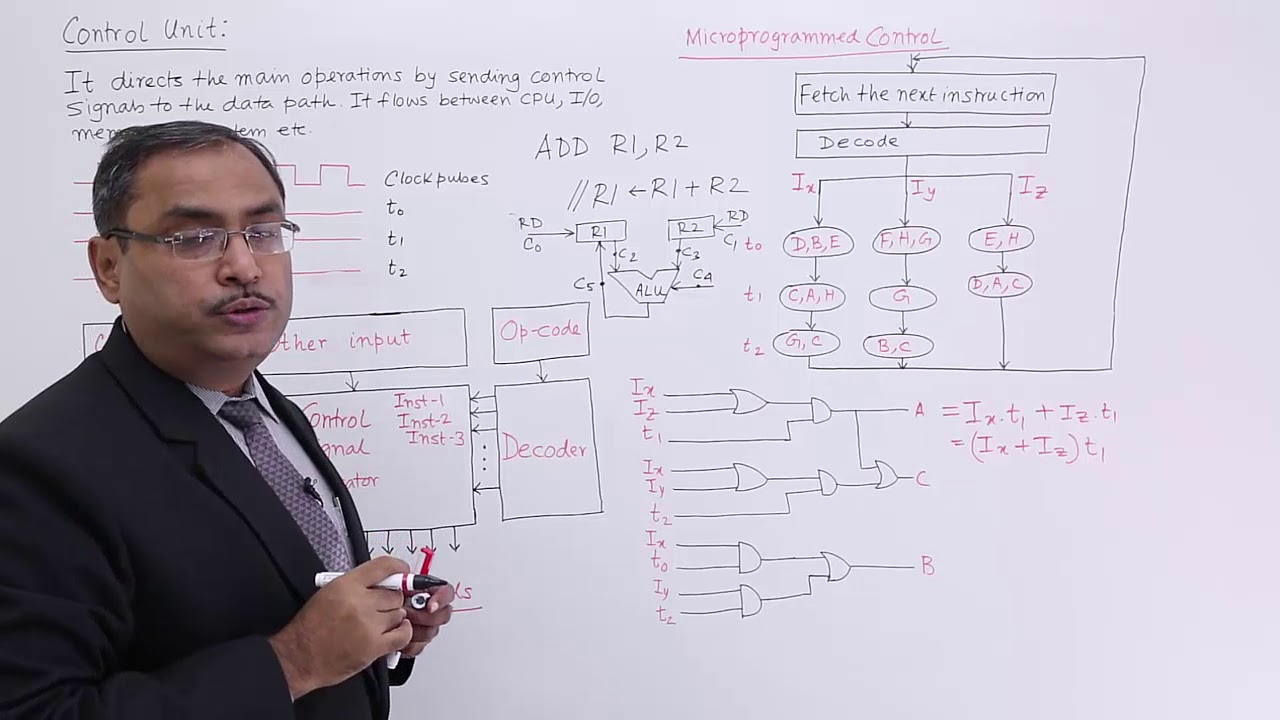 Control Unit:
It directs the main operations by sending control
signals to the data path. It flows between CPU, I/O,
etc.
Clock pulses
t0
t1
t2
ADD R1, R2
// R1 ← R1 + R2
RD
C0
R1
R2
RD
C1
C2
C3
C5
ALU
C4
Other input
Op-code
Control
Inst-1
Inst-2
Inst-3
Decoder
Microprogrammed Control
Fetch the next instruction
Decode
Ix
Iy
Iz
t0
D, B, E
F, H, G
E, H
t1
C, A, H
G
D, A, C
t2
G, C
B, C
Ix
Iz
t1
A = Ix.t1 + Iz.t1
= (Ix + Iz) t1
Ix
Iy
t2
C
Ix
t0
Iy
t2
B